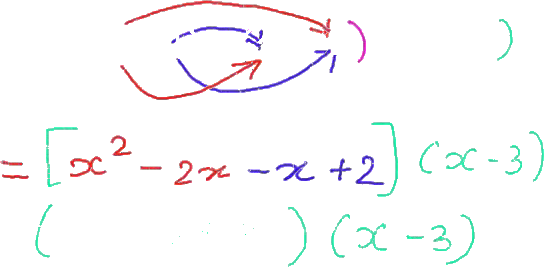 ) )
= [x² - 2x - x + 2] (x - 3)
( ) (x - 3)